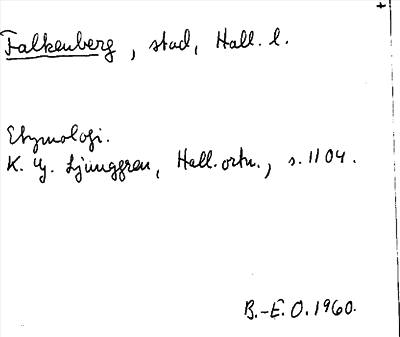 Falkenberg, stad, Hall. l.
Etymologi.
K. G. Ljunggren, Hall. ortn., s. 1104.
B.-E. O. 1960.